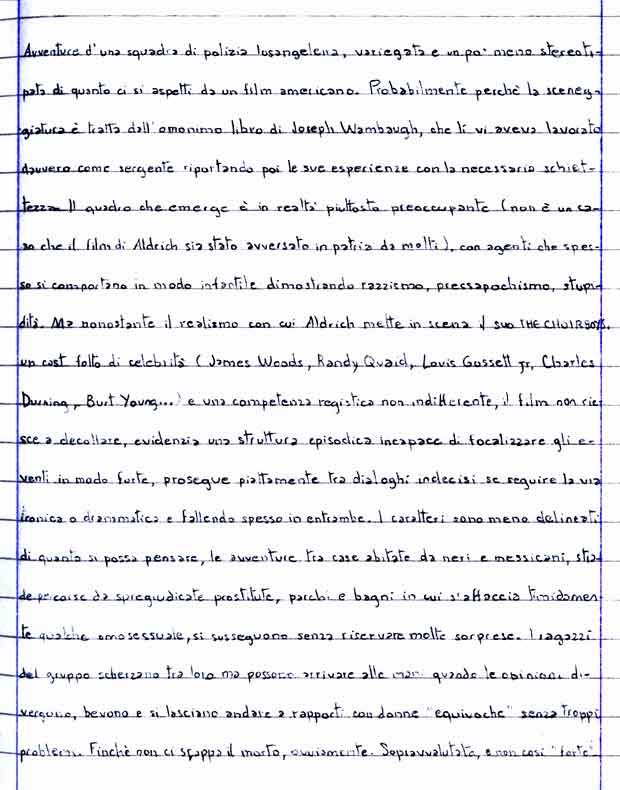 Avventure d'una squadra di polizia losangelena, variegata e un po' meno stereoti-
pata di quanto ci si aspetti da un film americano. Probabilmente perchè la sceneg-
giatura è tratta dall'omonimo libro di Joseph Wambaugh, che lì vi aveva lavorato
davvero come sergente riportando poi le sue esperienze con la necessaria schiet-
tezza. Il quadro che emerge è in realtà piuttosto preoccupante (non è un ca-
so che il film di Aldrich sia stato avversato in patria da molti), con agenti che spes-
so si comportano in modo infantile dimostrando razzismo, pressapochismo, stupi-
dità. Ma nonostante il realismo con cui Aldrich mette in scena il suo THE CHOIRBOYS,
un cast folto di celebrità (James Woods, Randy Quaid, Louis Gossett jr, Charles
Durning, Burt Young...) e una competenza registica non indifferente, il film non rie-
sce a decollare, evidenzia una struttura episodica incapace di focalizzare gli e-
venti in modo forte, prosegue piattamente tra dialoghi indecisi se seguire la via
ironica o drammatica e fallendo spesso in entrambe. I caratteri sono meno delineati
di quanto si possa pensare, le avventure tra case abitate da neri e messicani, stra-
de percorse da spregiudicate prostitute, parchi e bagni in cui s'affaccia timidamen-
te qualche omosessuale, si susseguono senza riservare molte sorprese. I ragazzi
del gruppo scherzano tra loro ma possono arrivare alle mani quando le opinioni di-
vergono, bevono e si lasciano andare a rapporti con donne "equivoche" senza troppi
problemi. Finchè non ci scappa il morto, ovviamente. Sopravvalutato, e non così "forte"